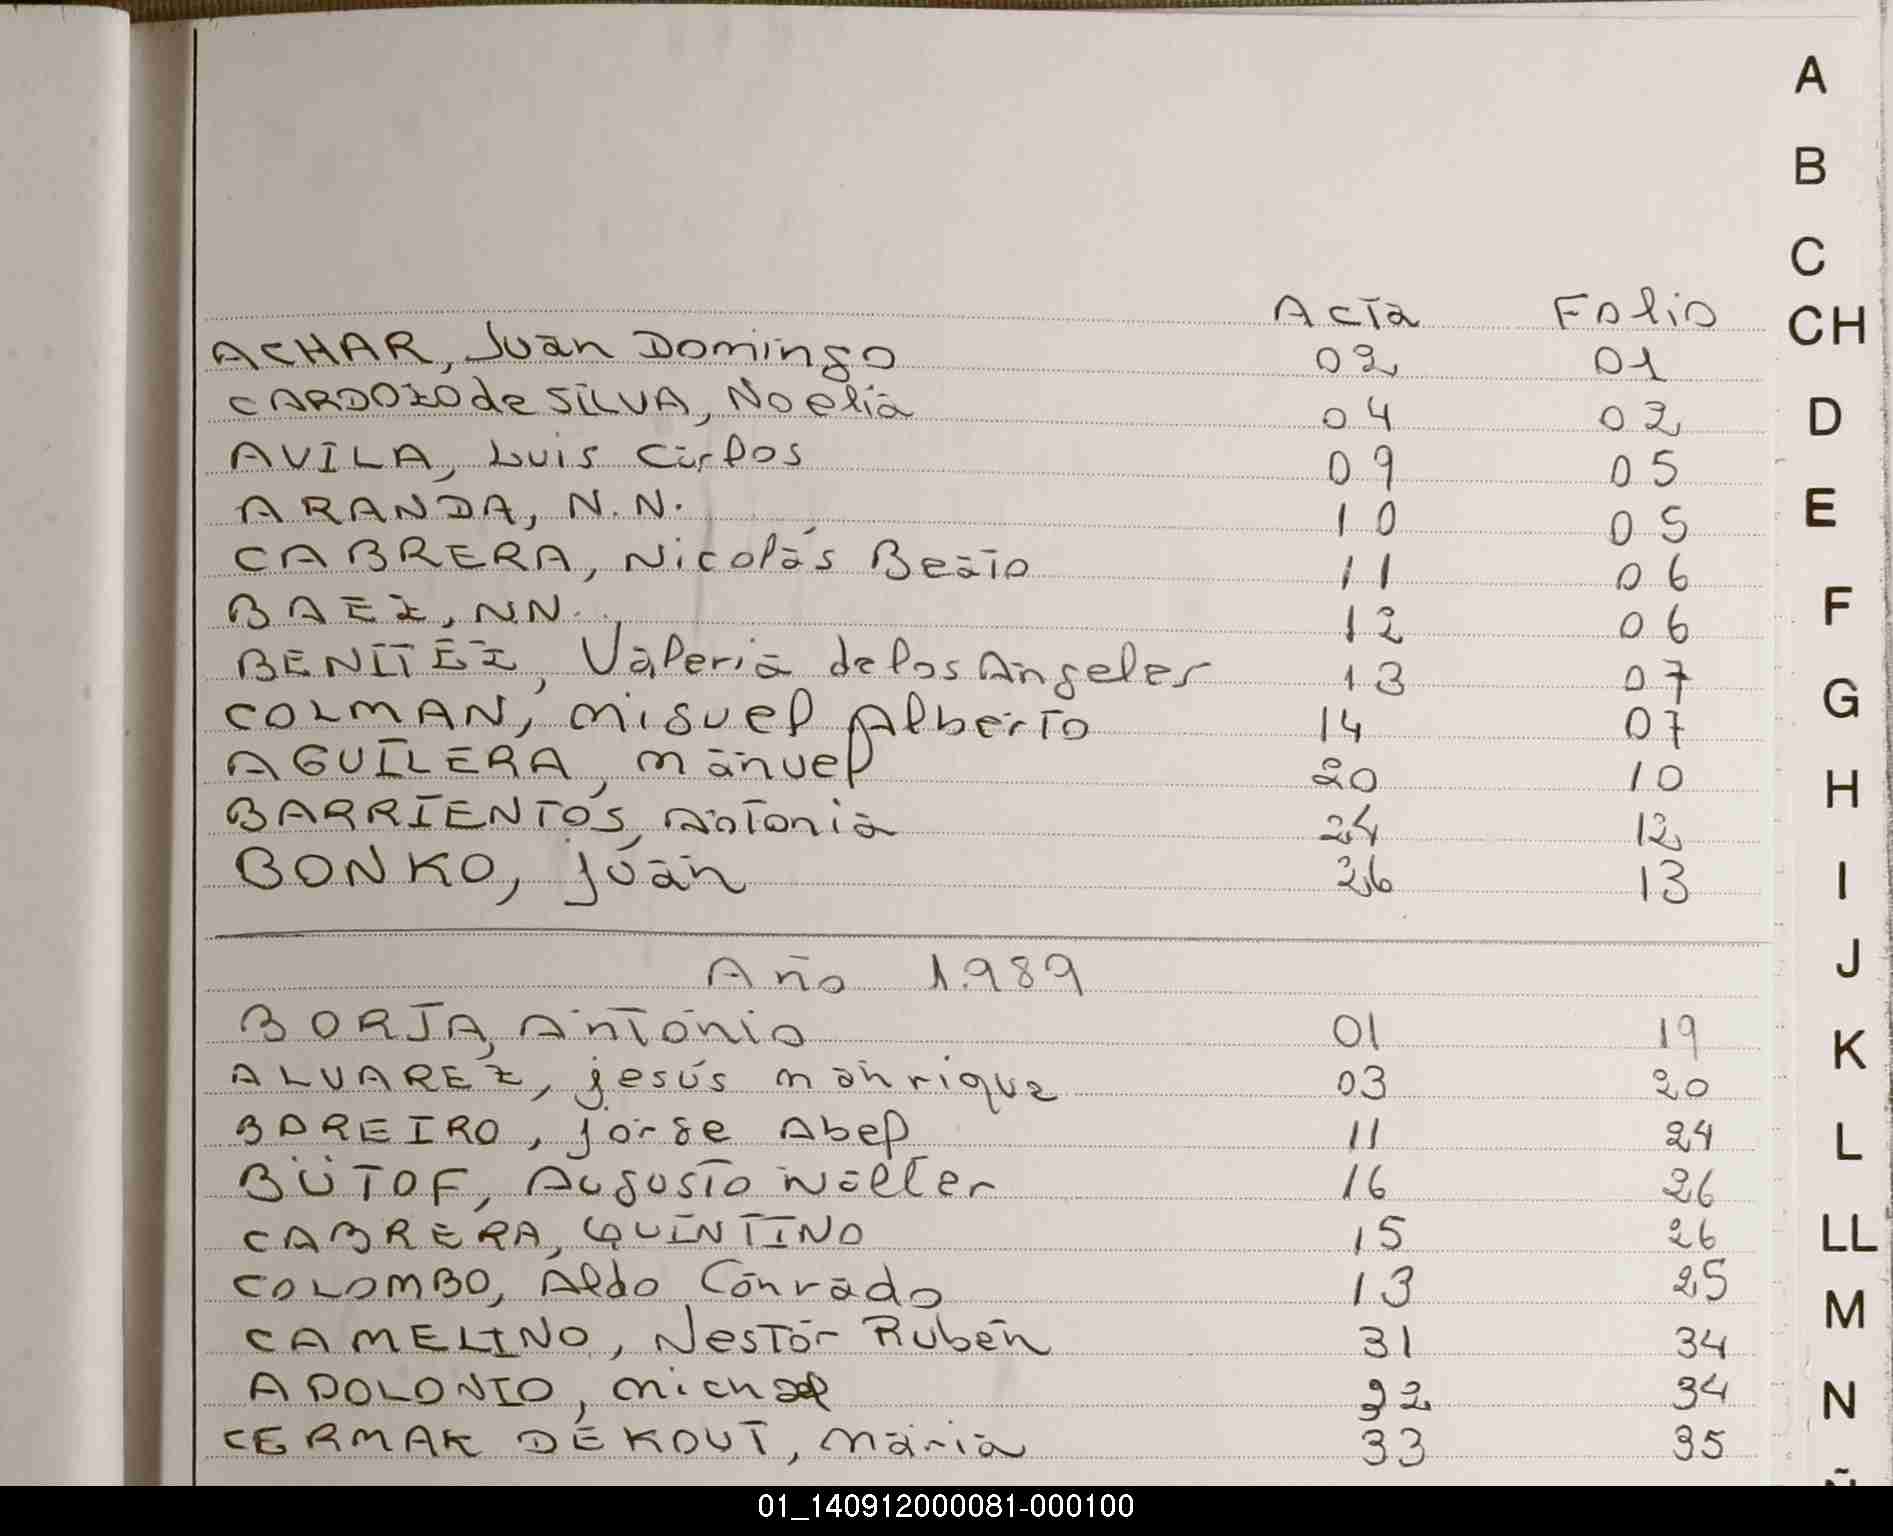 Acta Folio
ACHAR, Juan Domingo 02 01
CARDOZO de SILVA, Noelia 04 02
AVILA, Luis Carlos 09 05
ARANDA, N.N. 10 05
CABRERA, Nicolás Beato 11 06
BAEZ, NN. 12 06
BENITEZ, Valeria de los Angeles 13 07
COLMAN, Miguel Alberto 14 07
AGUILERA, Manuel 20 10
BARRIENTOS, Antonia 24 12
BONKO, Juan 26 13
Año 1.989
BORJA, Antonio 01 19
ALVAREZ, Jesús Manrique 03 20
BAREIRO, Jorge Abel 11 24
BÜTOF, Augusto Walter 16 26
CABRERA, QUINTINO 15 26
COLOMBO, Aldo Conrado 13 25
CAMELINO, Nestor Rubén 31 34
APOLONIO, 32 34
CERMAK DE KOUT, Maria 33 35
A
B
C
CH
D
E
F
G
H
I
J
K
L
LL
M
N
01_140912000081-000100